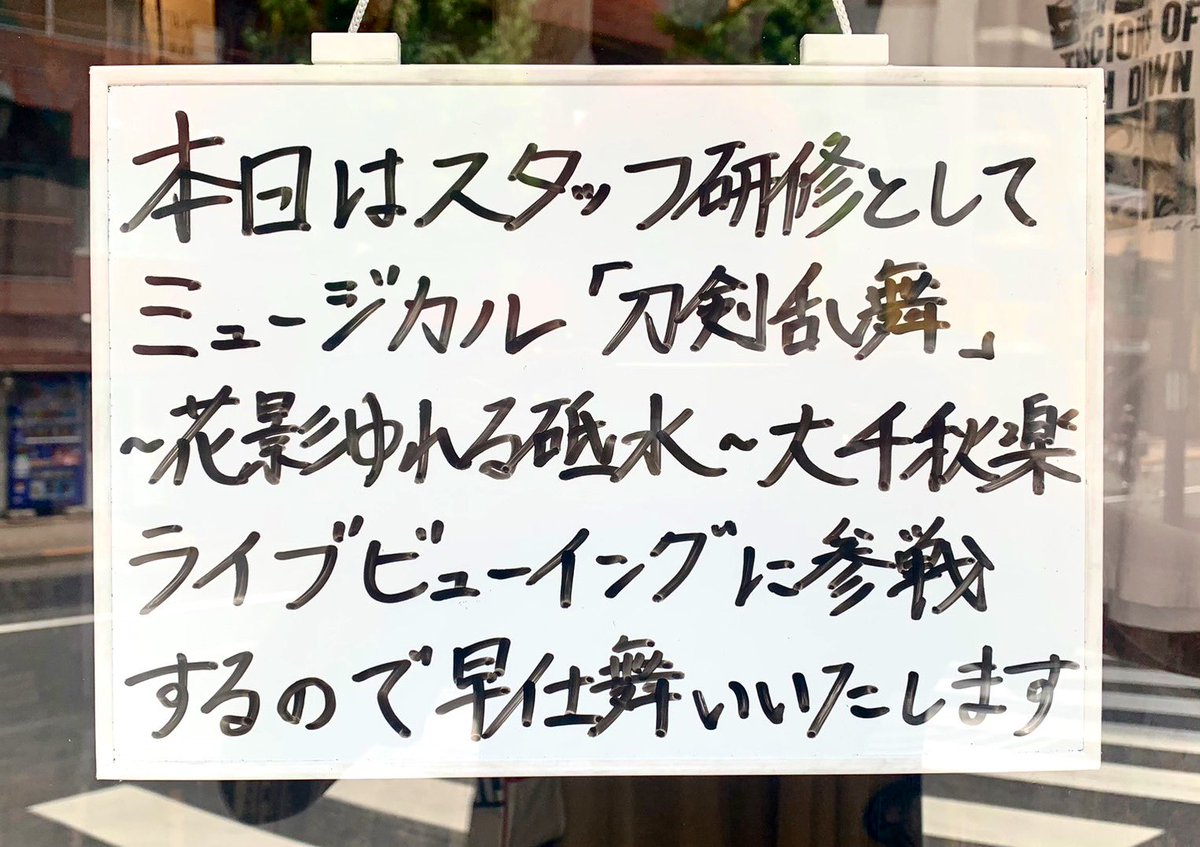 本日はスタッフ研修として
ミュージカル「刀剣乱舞」
~花影ゆれる砥水~大千秋楽
ライブビューイングに参戦
するので早仕舞いいたします
OF
DOWN